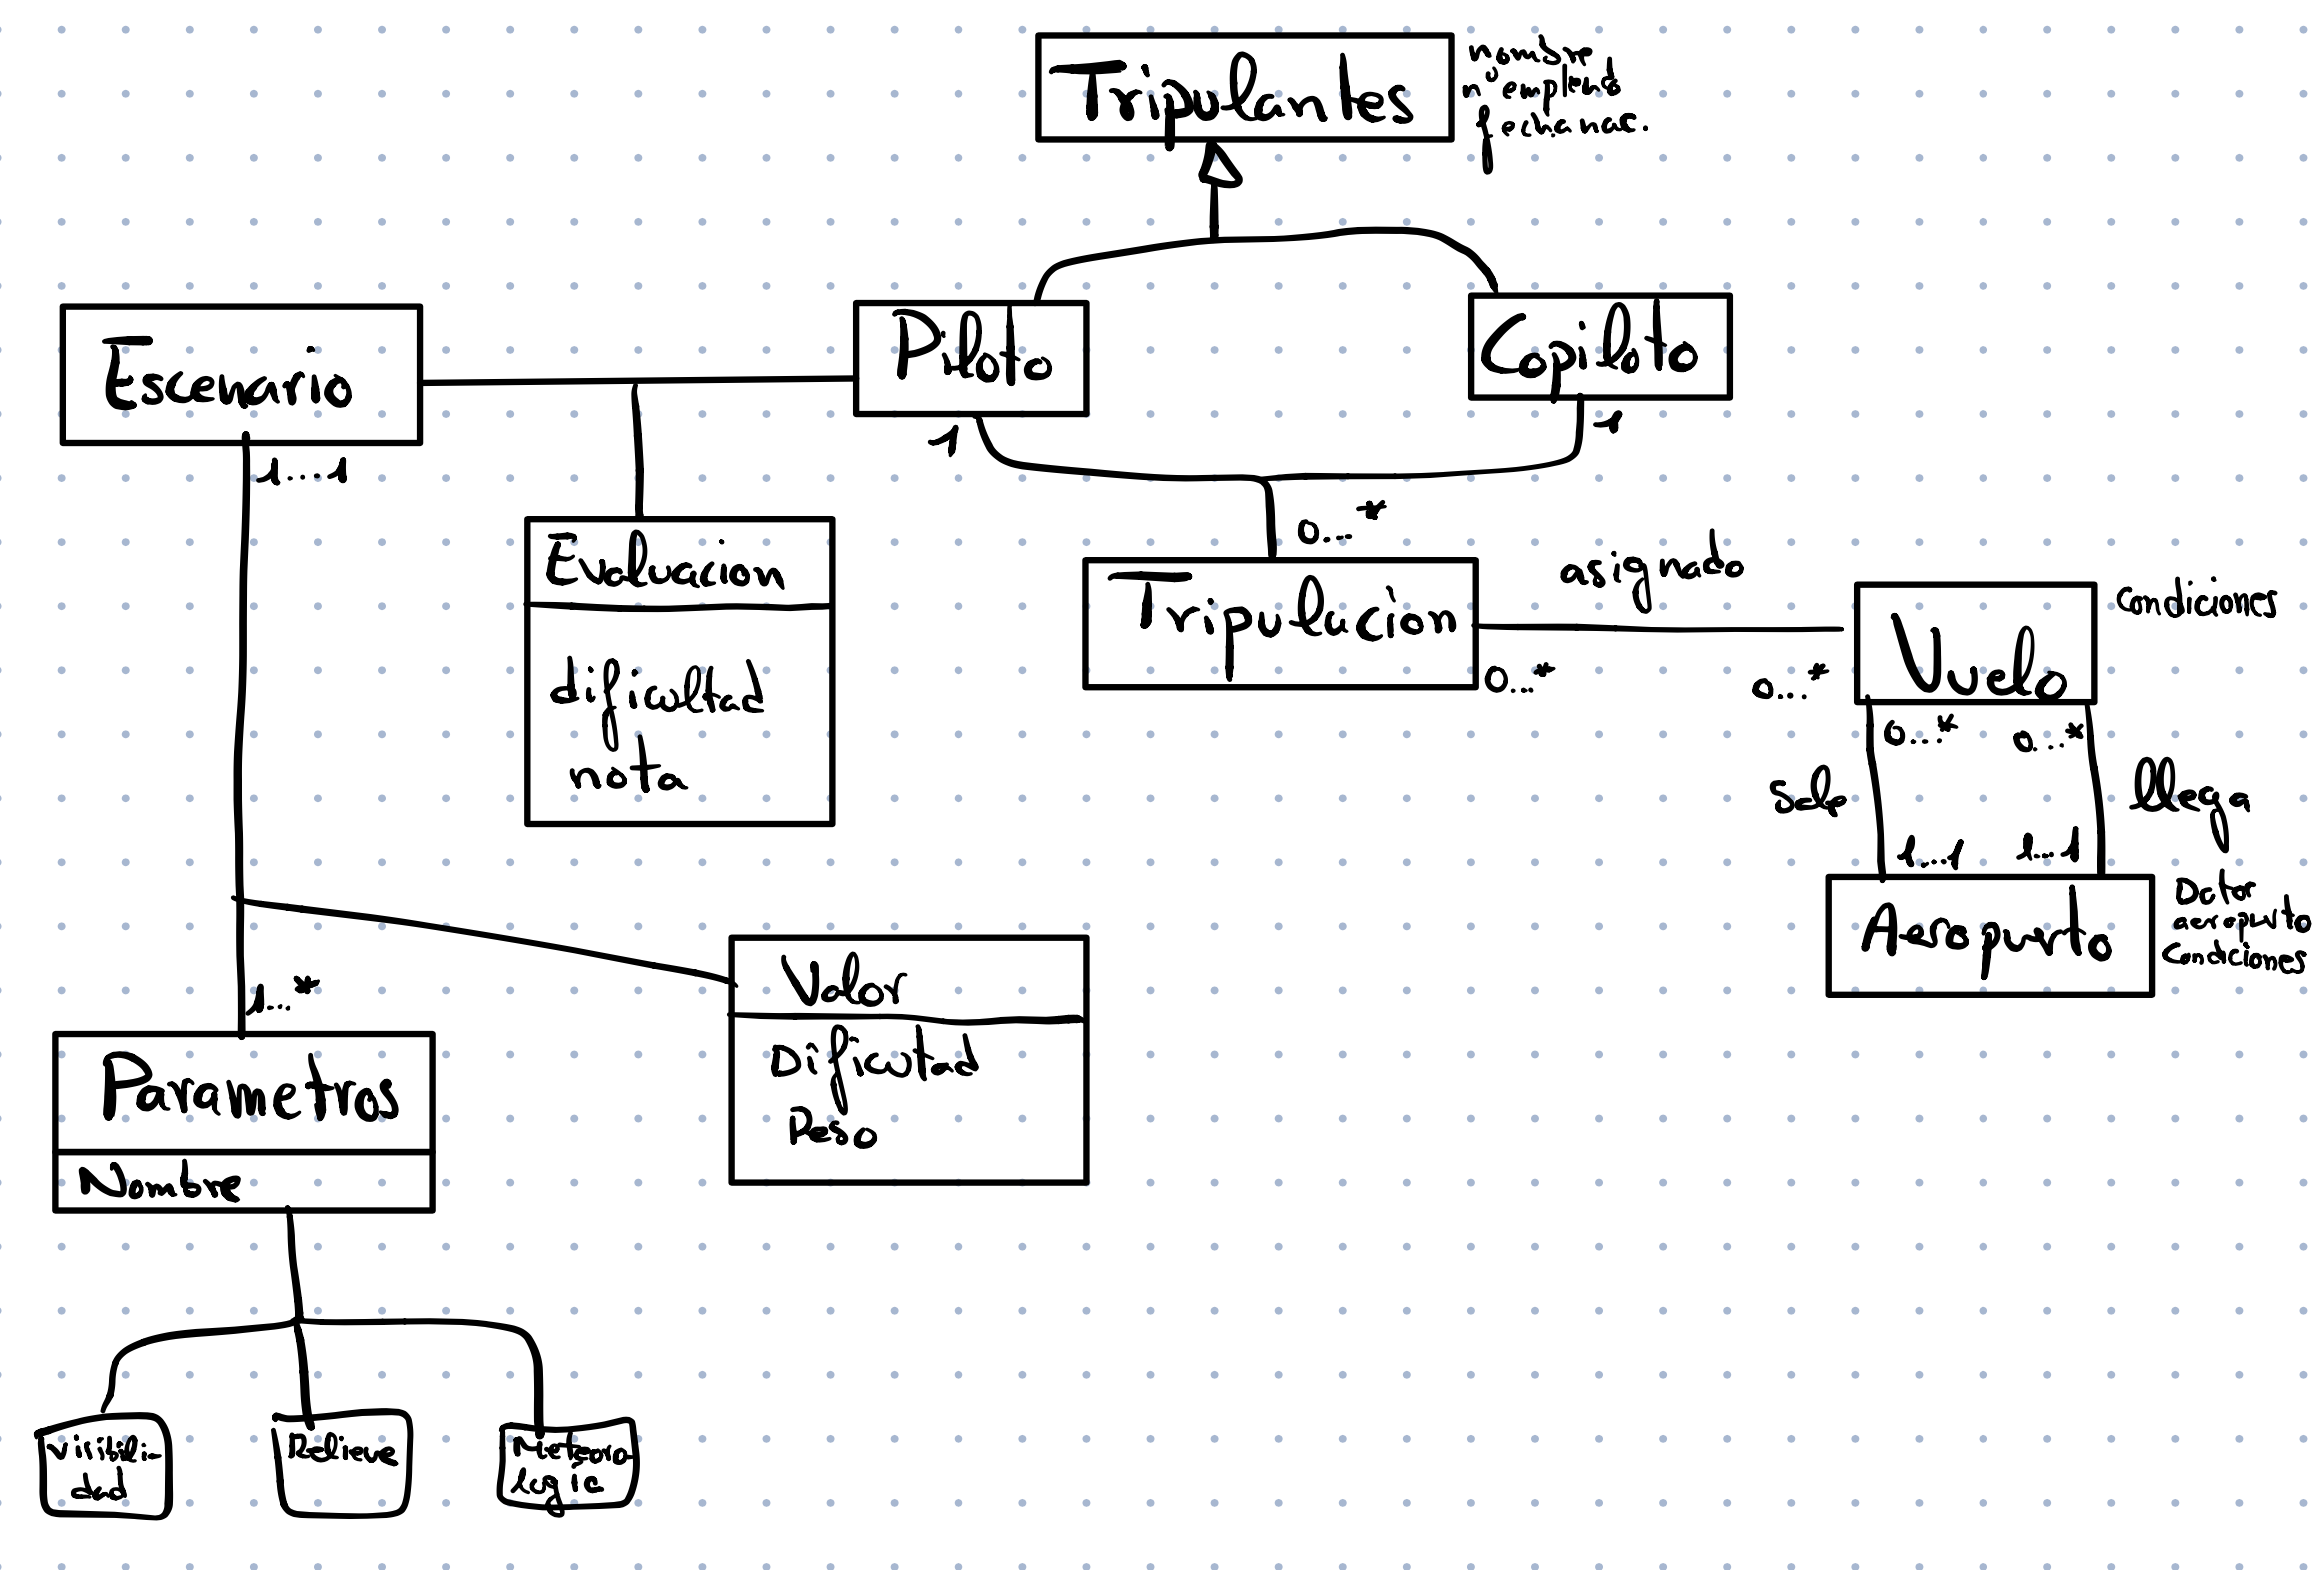 Tripulantes
nombre
nº empleado
fecha nac.
Escenario
Piloto
Copiloto
1...1
1
1
Evaluacion
dificultad
nota
0...*
Tripulacion
asignado
0...*
0...*
Vuelo
Condiciones
0...*
0...*
Sale
llega
1...1
1...1
Aeropurto
Condiciones
1...*
Valor
Dificultad
Peso
Parametros
Nombre
Visibili-
dad
Relieve
Meteoro-
logic